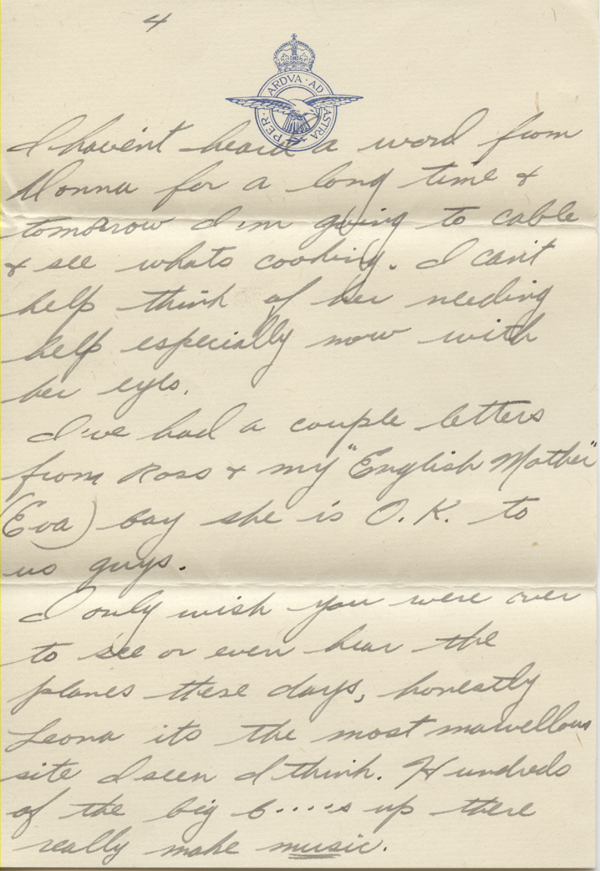 4
PER · ARDVA · AD · ASTRA
I haven't heard a word from
Nonna for a long time &
tomorrow I'm going to cable
& see whats cooking. I can't
help think of her needing
help especially now with
her eyes.
I've had a couple letters
from Ross & my "English Mother"
(Eva) boy she is O.K. to
us guys.
I only wish you were over
to see or even hear the
planes these days, honestly
Leona its the most marvellous
site I seen I think. Hundreds
of the big b....s up there
really make music.